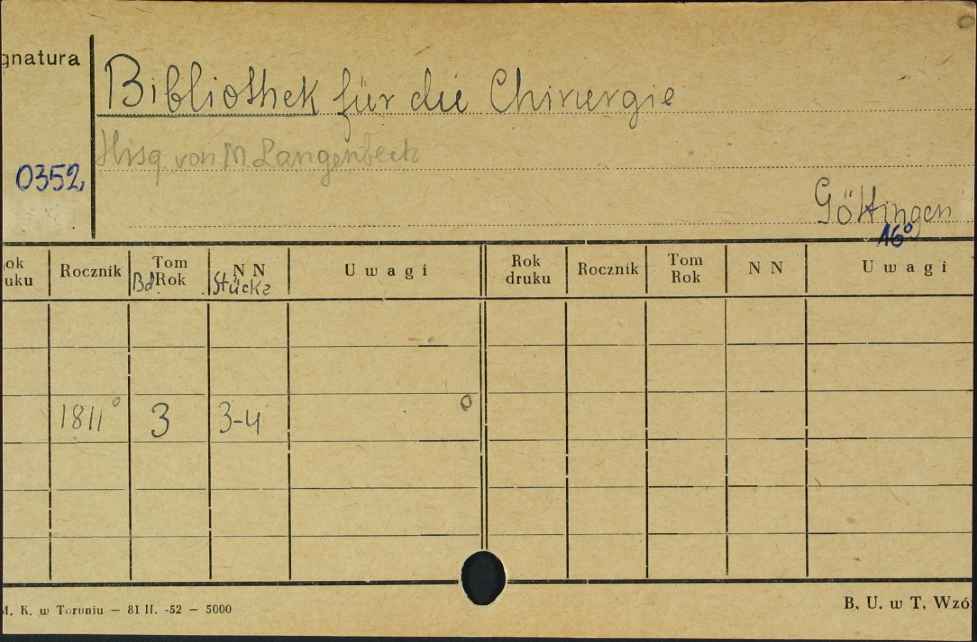 gnatura
Bibliothek für die Chirurgie
Hrsg. von M. Langenbeck
0352,
Göttingen
16°
ok uku Rocznik Tom Rok Bd. N N Stücke Uwagi Rok druku Rocznik Tom Rok N N Uwagi
1811° 3 3-4 o
M. K. w Toruniu — 81 II. -52 — 5000
B. U. w T. Wzó